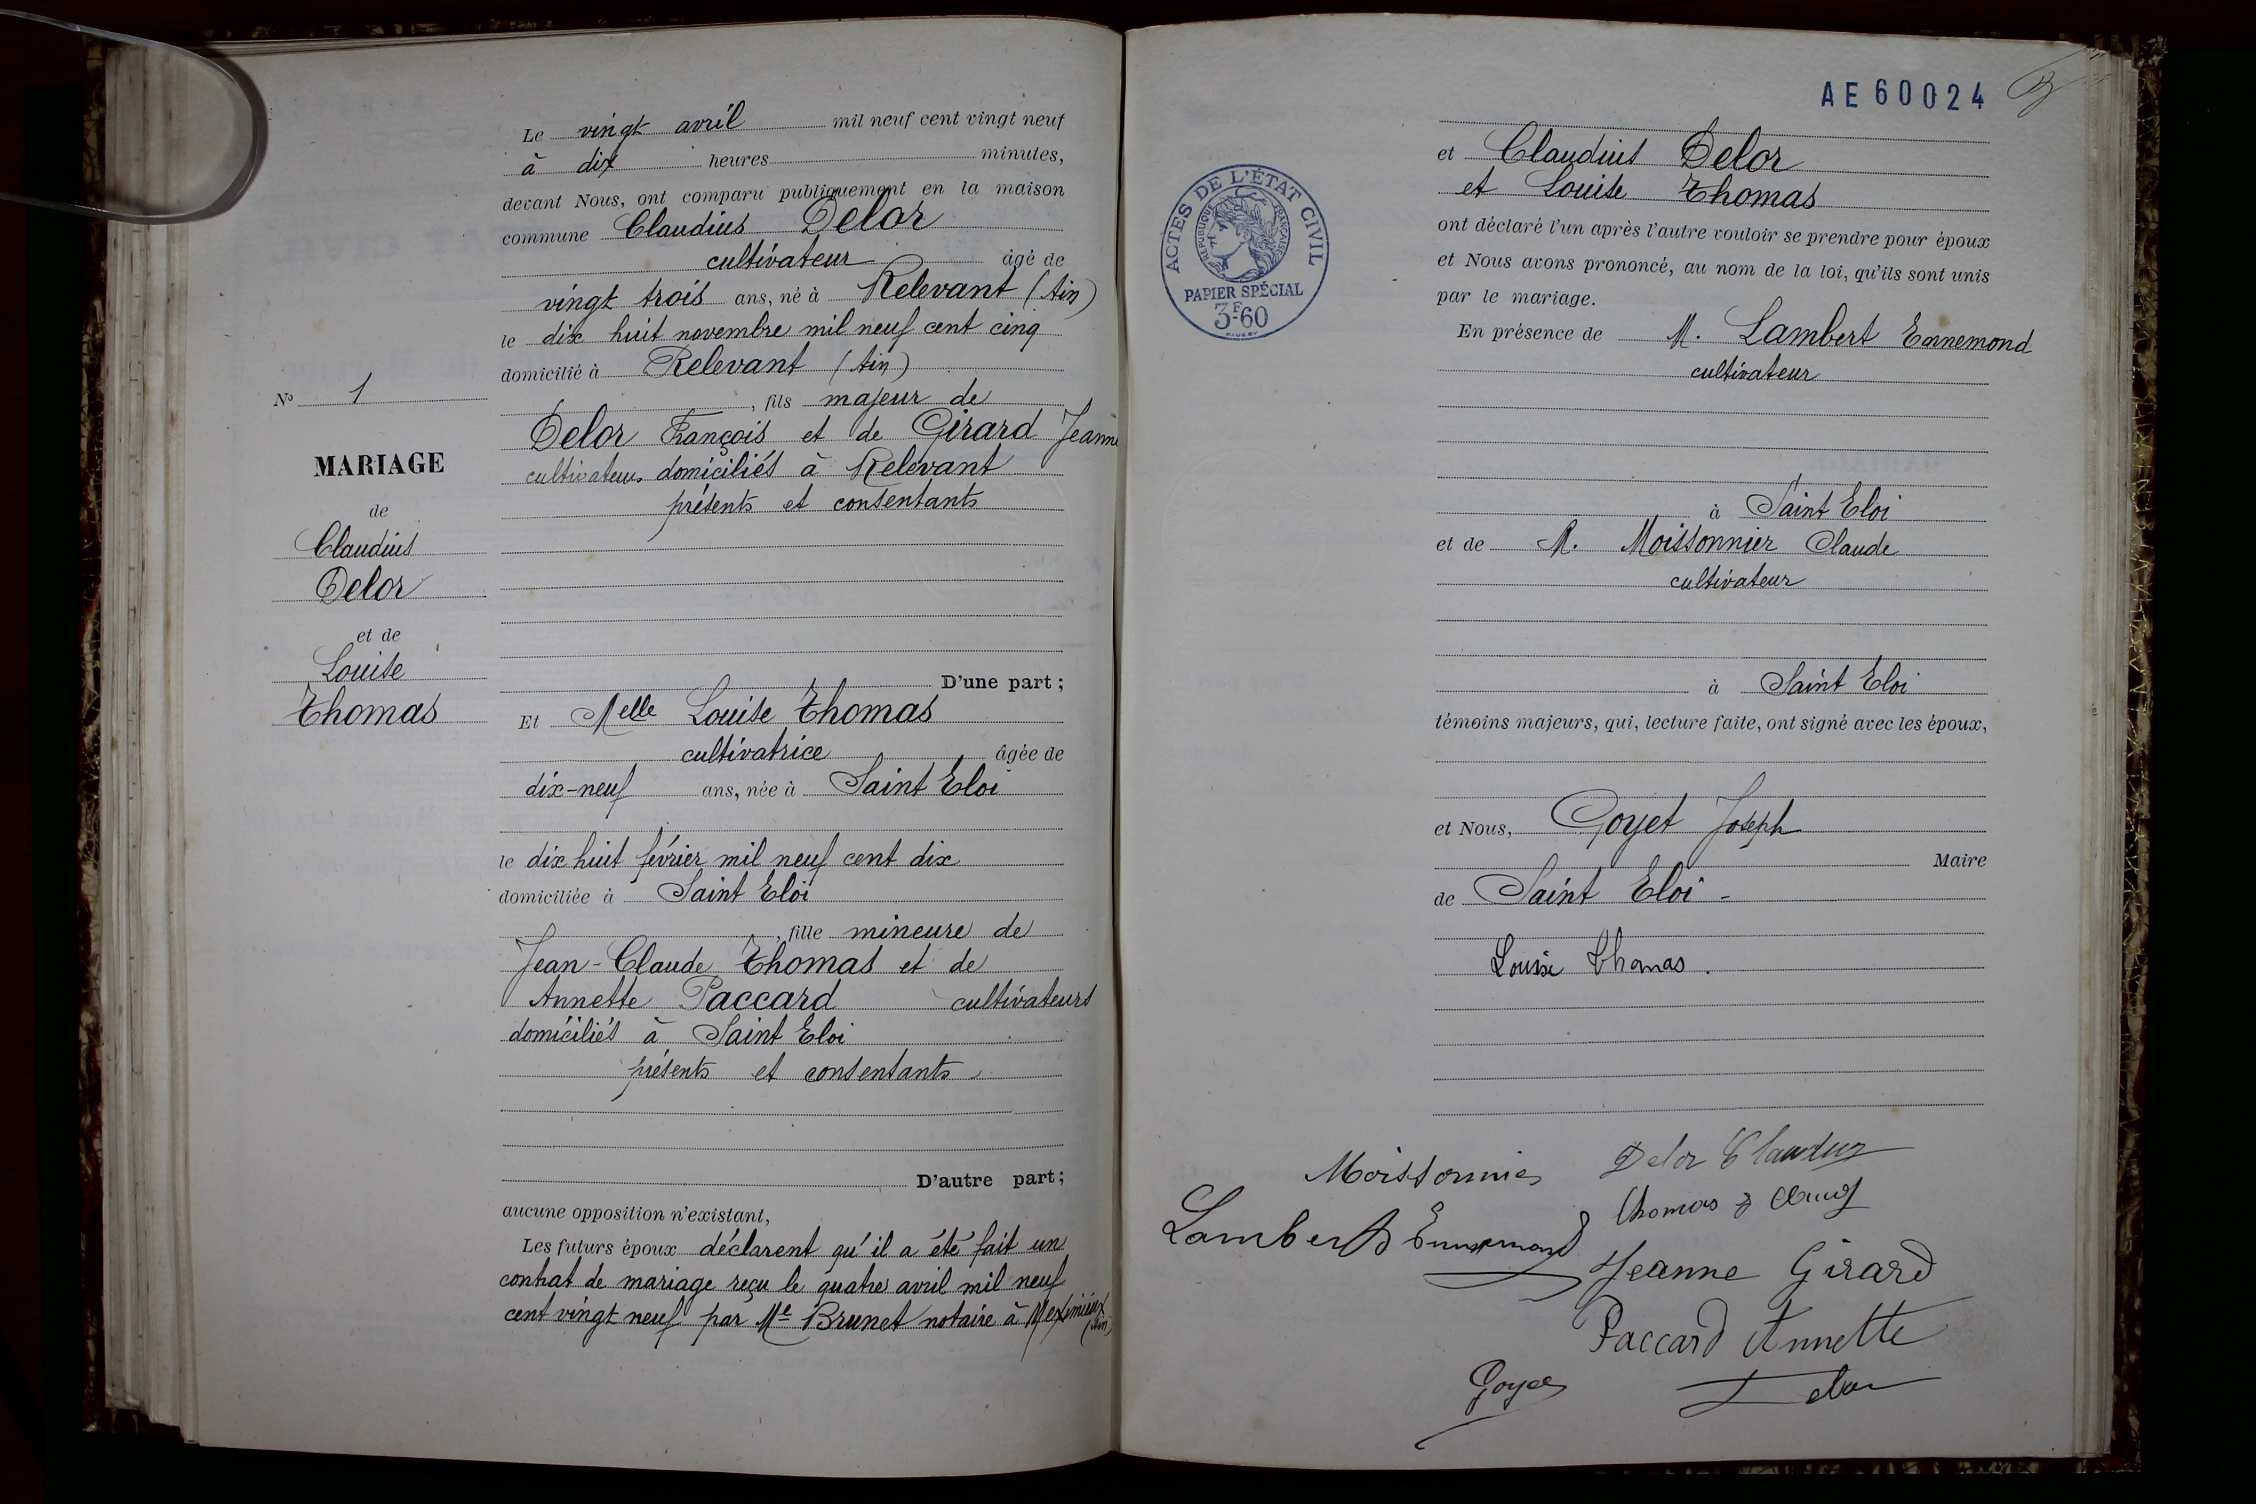 Le vingt avril mil neuf cent vingt neuf
à dix heures minutes,
devant Nous, ont comparu publiquement en la maison
commune Claudius Delor
cultivateur âgé de
vingt trois ans, né à Relevant (Ain)
le dix huit novembre mil neuf cent cinq
domicilié à Relevant (Ain)
, fils majeur de
Delor François et de Girard Jeanne
cultivateurs domiciliés à Relevant
présents et consentants
D'une part ;
Et Melle Louise Thomas
cultivatrice âgée de
dix-neuf ans, née à Saint Eloi
le dix huit février mil neuf cent dix
domiciliée à Saint Eloi
, fille mineure de
Jean-Claude Thomas et de
Annette Paccard cultivateurs
domiciliés à Saint Eloi
présents et consentants
D'autre part ;
aucune opposition n'existant,
Les futurs époux déclarent qu'il a été fait un
contrat de mariage reçu le quatre avril mil neuf
cent vingt neuf par Me Brunet notaire à Meximieux
(Ain)
No 1
MARIAGE
de
Claudius
Delor
et de
Louise
Thomas
AE 60024
ACTES DE L'ÉTAT CIVIL
RÉPUBLIQUE FRANÇAISE
PAPIER SPÉCIAL
3F60
et Claudius Delor
et Louise Thomas
ont déclaré l'un après l'autre vouloir se prendre pour époux
et Nous avons prononcé, au nom de la loi, qu'ils sont unis
par le mariage.
En présence de M. Lambert Ennemond
cultivateur
à Saint Eloi
et de M. Moissonnier Claude
cultivateur
à Saint Eloi
témoins majeurs, qui, lecture faite, ont signé avec les époux,
et Nous, Goyet Joseph
Maire
de Saint Eloi -
Louise Thomas.
Moissonnier
Delor Claudius
Lambert Ennemond
Thomas J Claude
Jeanne Girard
Paccard Annette
Goyet
Delor